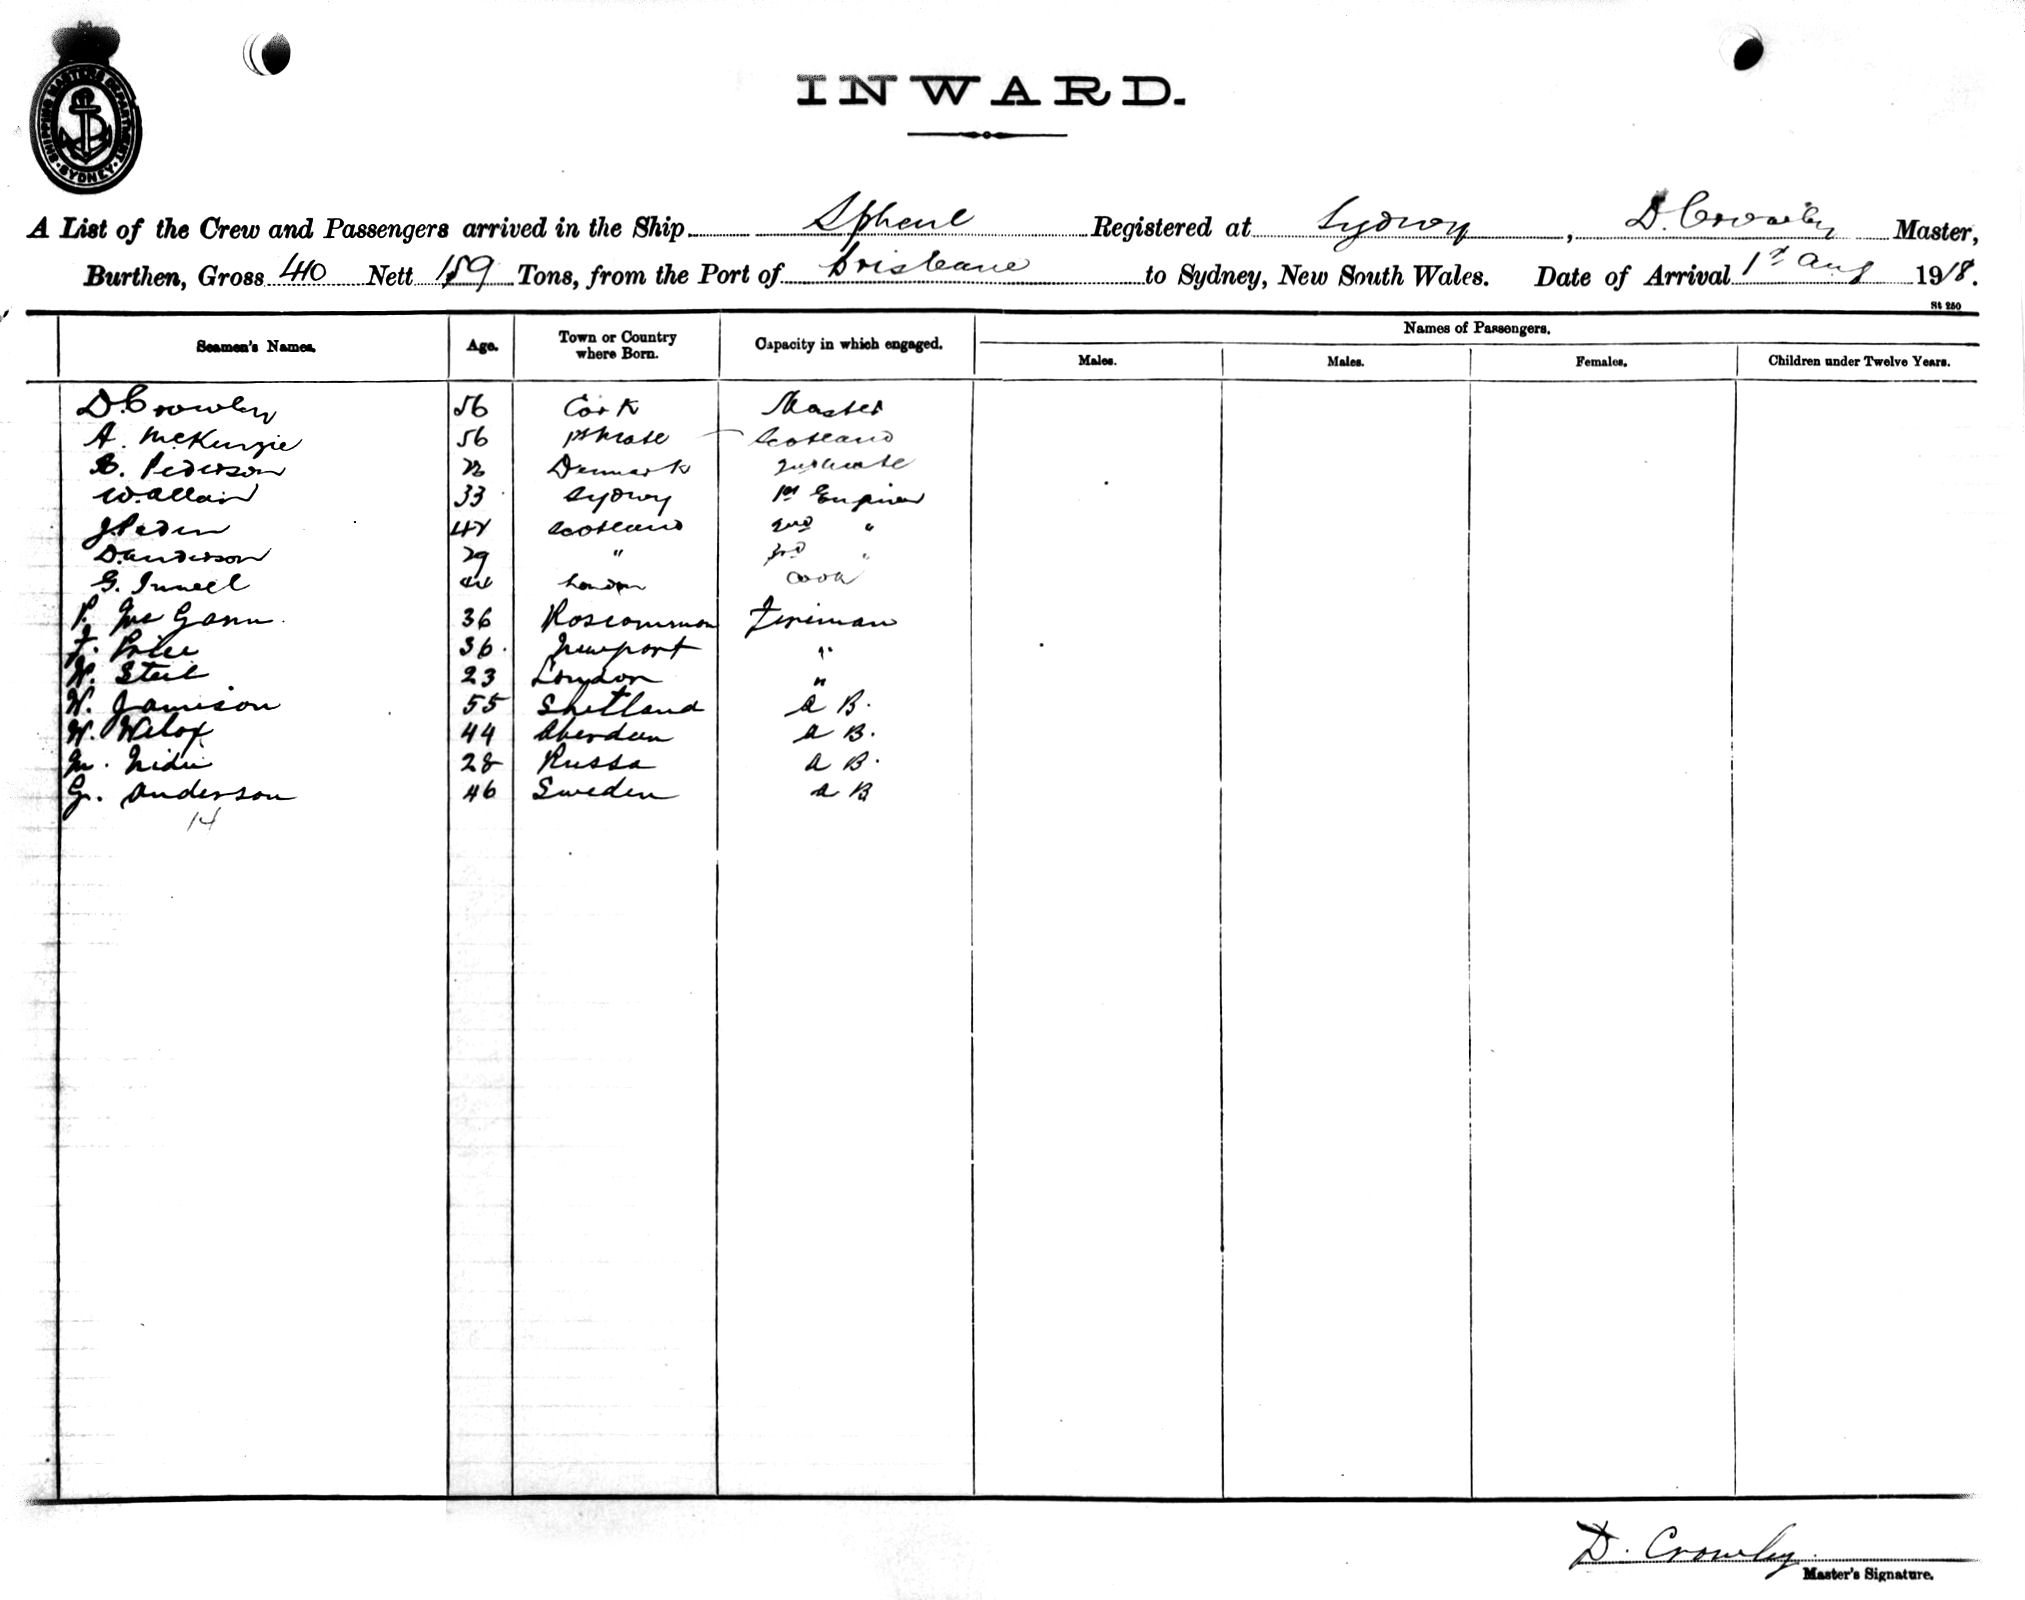 SHIPPING MASTERS DEPARTMENT · SYDNEY ·
INWARD.
A List of the Crew and Passengers arrived in the Ship Sphene Registered at Sydney, D. Crowley Master,
Burthen, Gross 410 Nett 159 Tons, from the Port of Brisbane to Sydney, New South Wales. Date of Arrival 1st Aug 1918.
St 250
Seamen's Names. Age. Town or Country where Born. Capacity in which engaged. Names of Passengers.
Males. Males. Females. Children under Twelve Years.
D. Crowley 56 Cork Master
A. McKenzie 56 1st Mate Scotland
Pederson Denmark 2nd Mate
W. Allan 33 Sydney 1st Engineer
J. Peden Scotland 2nd "
D. Anderson 29 " 3rd "
G. 44 London Cook
P. McGann 36 Roscommon Fireman
F. Price 36 Newport "
W. Steil 23 London "
W. Jamison 55 Shetland A B.
W. Wilox 44 Aberdeen A B.
M. 28 Russa A B.
G. Anderson 46 Sweden A B
14
D. Crowley
Master's Signature.